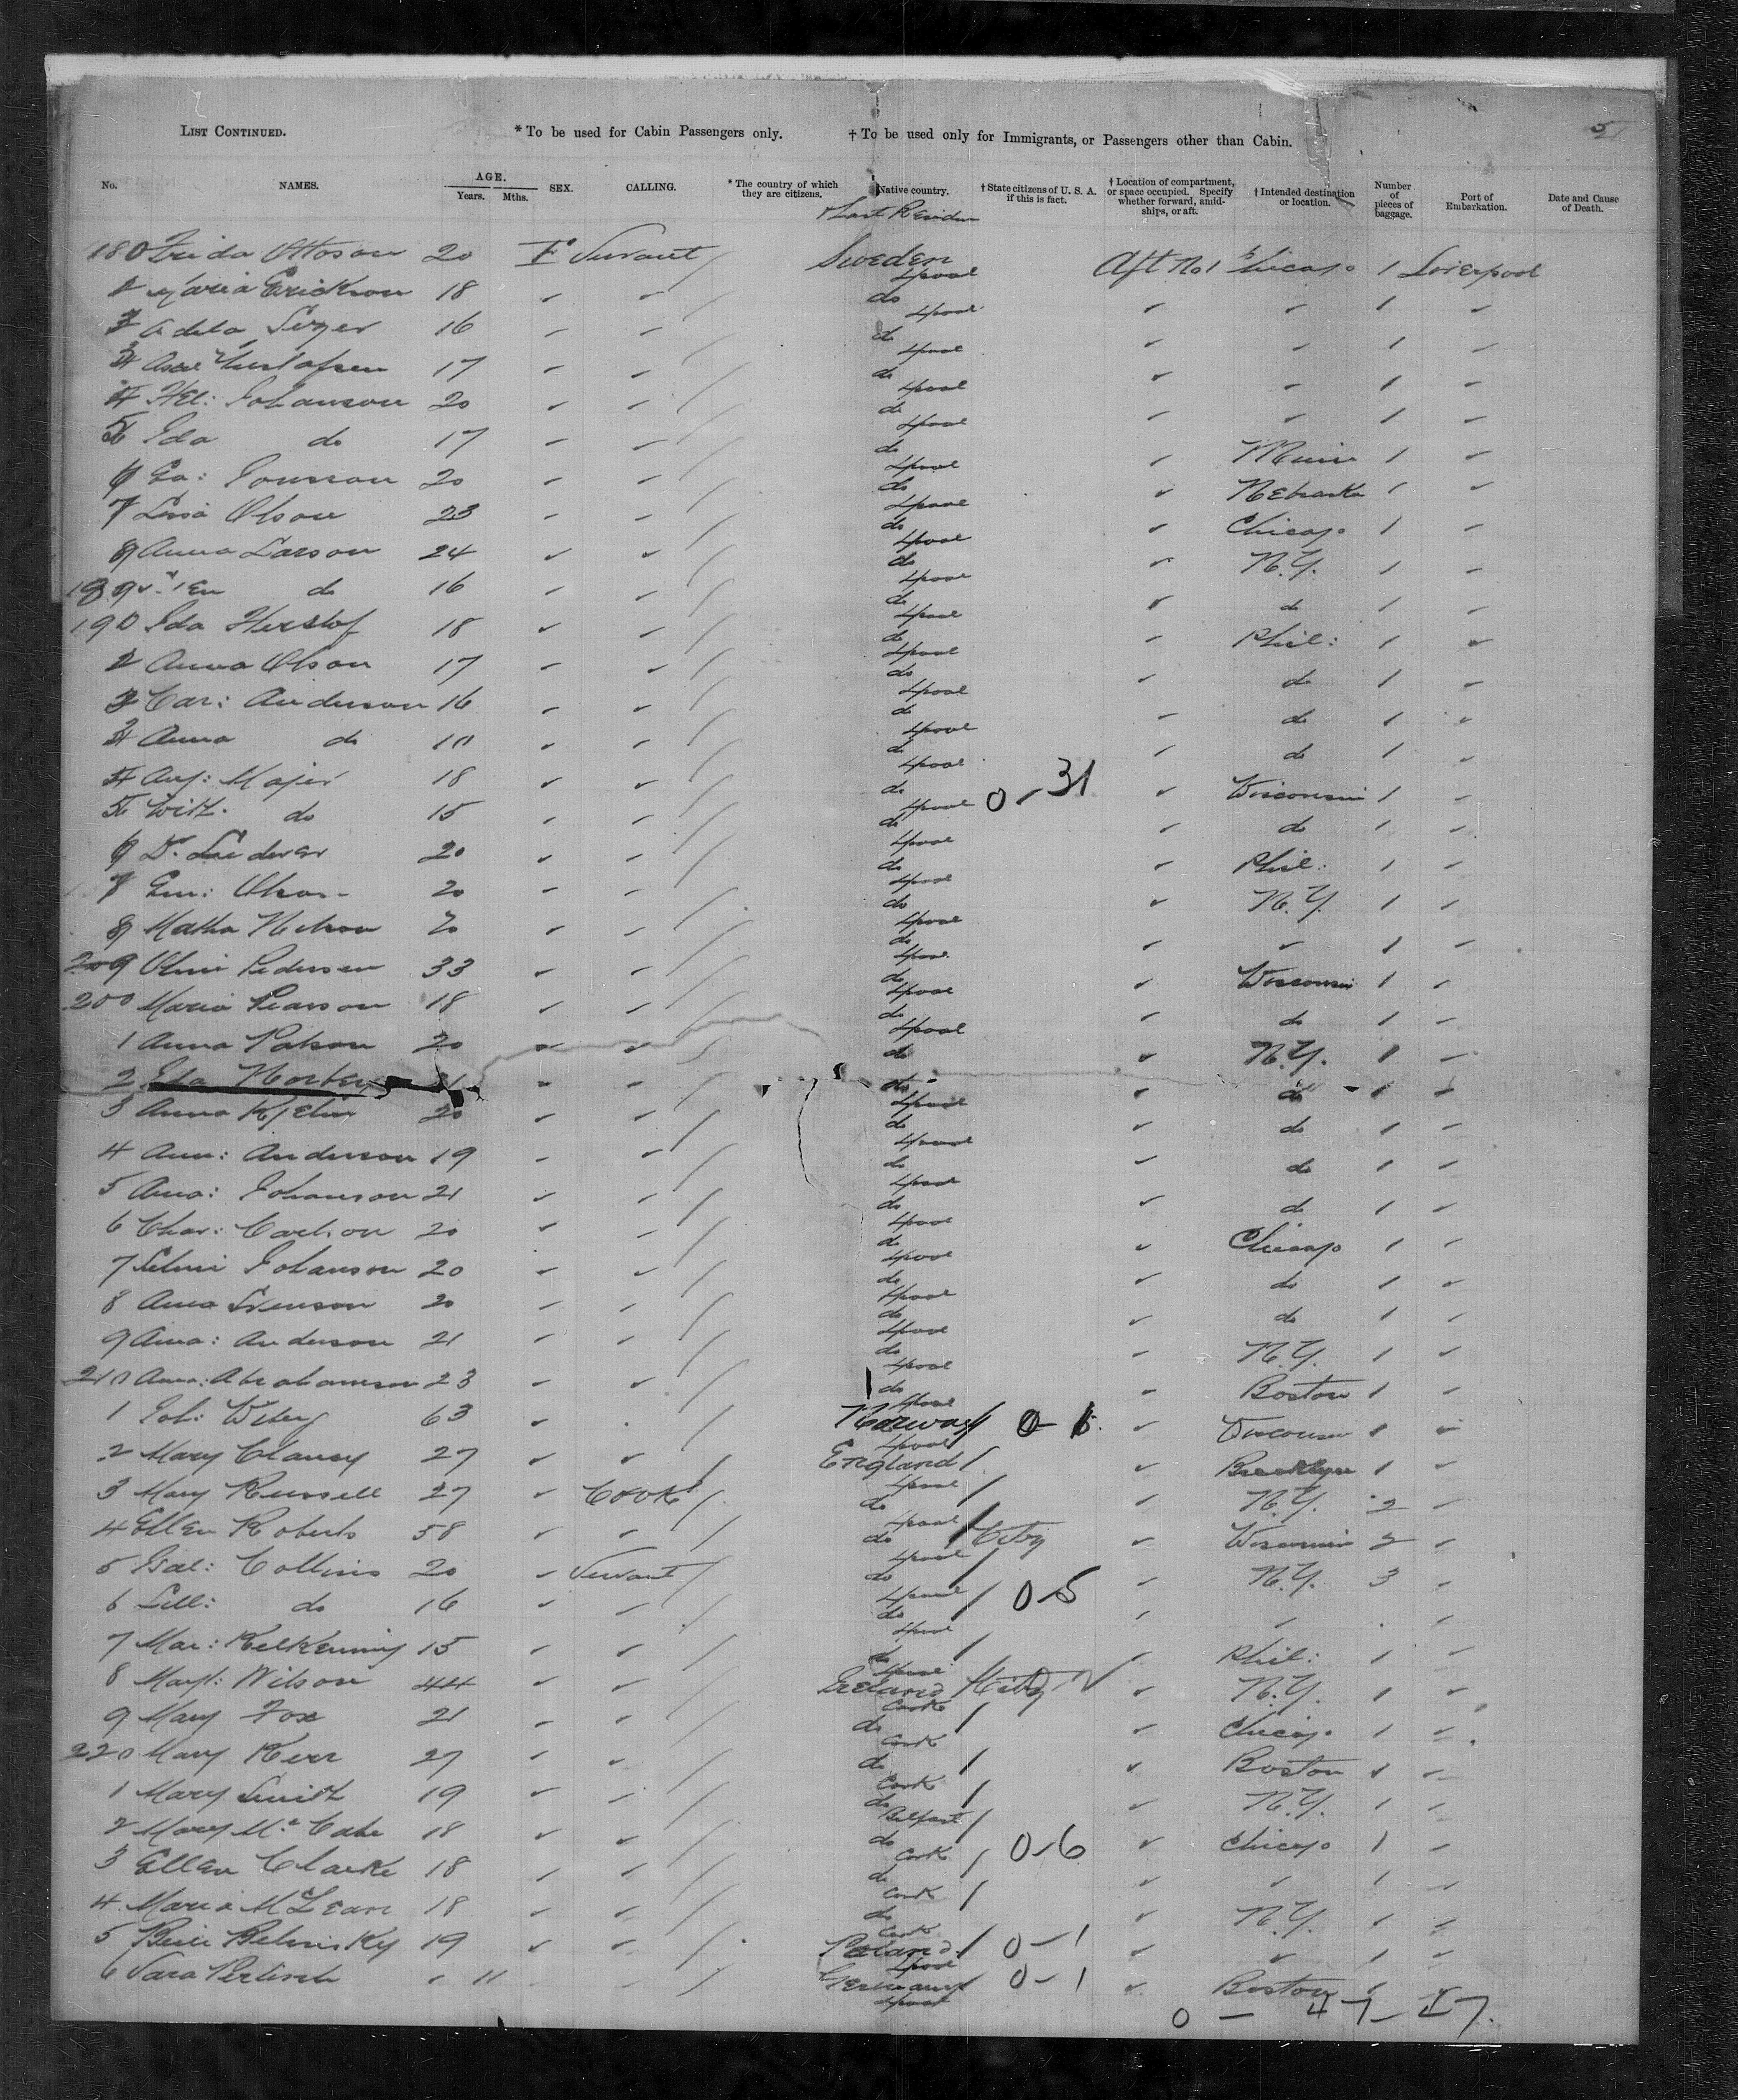 LIST CONTINUED. * To be used for Cabin Passengers only. † To be used only for Immigrants, or Passengers other than Cabin.
No. NAMES. AGE. Years. Mths. SEX. CALLING. * The country of which they are citizens. Native country. † State citizens of U. S. A. if this is fact. † Location of compartment, or space occupied. Specify whether forward, amidships, or aft. † Intended destination or location. Number of pieces of baggage. Port of Embarkation. Date and Cause of Death.
180 Frida Ottoson 20 F Servant Sweden Lpool Aft No 1 Chicago 1 Liverpool
Maria Erickson 18 do Lpool 1
Adela 16 do Lpool 1
Gustafsen 17 do Lpool 1
4 Hel: Johanson 20 do Lpool 1
5 Ida do 17 do Lpool Minn 1
6 Jonsson 20 do Lpool Nebraska 1
7 Olson 23 do Lpool Chicago 1
8 Anna Larson 24 do Lpool N.Y. 1
189 do 16 do Lpool do 1
190 Ida 18 do Lpool Phil: 1
Anna Olson 17 do Lpool do 1
Car: Anderson 16 do Lpool do 1
Anna do 10 do Lpool do 1
4 Aug: Majer 18 do Lpool 0-31 Wisconsin 1
5 do 15 do Lpool do 1
6 20 do Lpool Phil: 1
7 Em: Olson 20 do Lpool N.Y. 1
8 Matha Nelson 20 do Lpool 1
9 Pedersen 33 do Lpool Wisconsin 1
200 Maria Pearson 18 do Lpool do 1
1 Anna 20 do N.Y. 1
2 21 do Lpool do 1
3 Anna 20 do Lpool do 1
4 Ann: Anderson 19 do Lpool do 1
5 Anna: Johanson 21 do Lpool do 1
6 Char: Carlson 20 do Lpool Chicago 1
7 Selma Johanson 20 do Lpool do 1
8 Anna Svenson 20 do Lpool do 1
9 Anna: Anderson 21 do Lpool N.Y. 1
210 Anna: Abrahamson 23 do Lpool Boston 1
1 Joh: 63 Norway Lpool Wisconsin 1
2 Mary Clancy 27 England Lpool Brooklyn 1
3 Mary Russell 27 Cook do Lpool N.Y. 2
4 Ellen Roberts 58 do Lpool City Wisconsin 2
5 Isal: Collins 20 Servant do Lpool 0-5 N.Y. 3
6 Lill: do 16 do Lpool
7 Mar: Kilkenny 15 do Lpool Phil: 1
8 Margt: Wilson 44 Ireland Cork N.Y. 1
9 Mary Fox 21 do Cork Chicago 1
220 Mary Kerr 27 do Cork Boston 1
1 Mary Smith 19 do Belfast N.Y. 1
2 Mary McCabe 18 do Cork 0-6 Chicago 1
3 Ellen Clarke 18 do Cork 1
4 Maria McLean 18 do Cork N.Y. 1
5 19 Poland Lpool 0-1 1
6 Sara 11 Germany Lpool 0-1 Boston 1
0 - 47 -